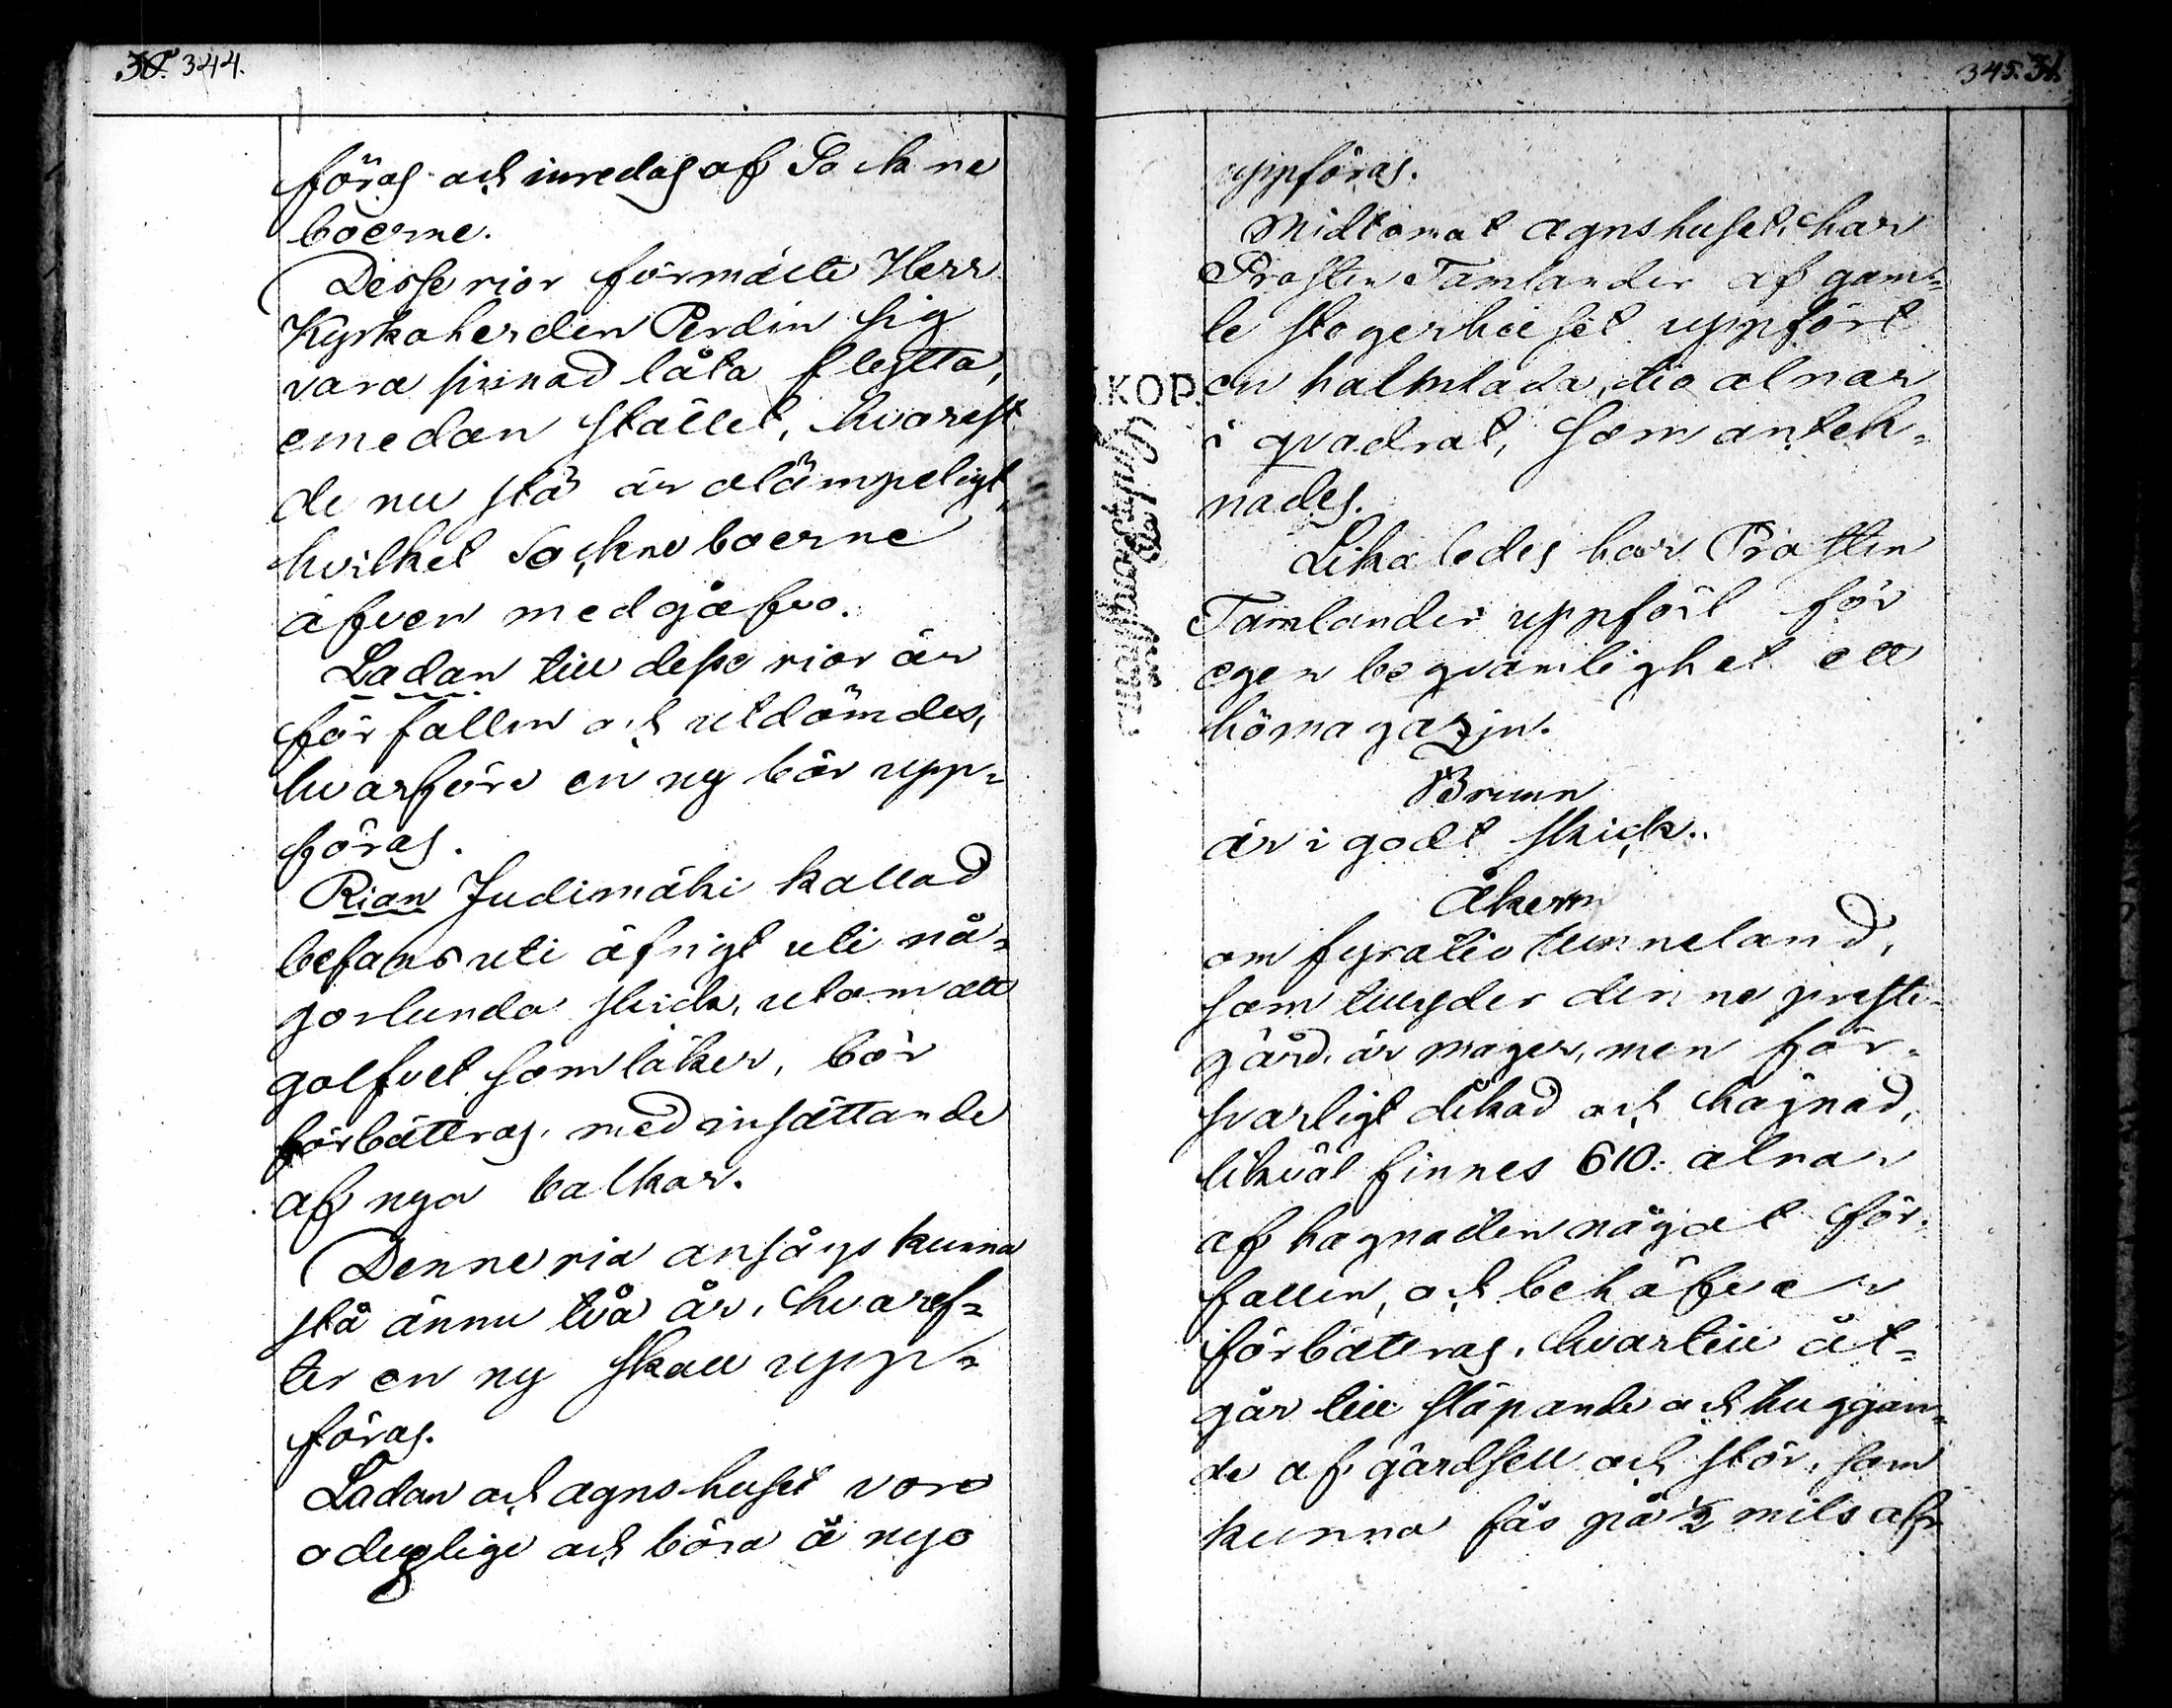 30. 344.
föras och inredas af Sockne
boerne.
Desse rior förmälte Herr
Kyrkoherden Perdin sig
vara sinnad låta flytta,
emedan stället, hvarest
de nu stå är olämpeligt,
hvilket Sockneboerne
äfven medgåfvo.
Ladan till desse rior är
förfallen och utdömdes,
hvarföre en ny bör upp=
föras.
Rian Judinmäki kallad
befans uti öfrigt uti nå=
gorlunda skick, utom att
golfvet som läker, bör
förbättras, med insättande
af nya balkar.
Denne ria ansågs kunna
stå ännu två år, hvaref=
ter en ny skall upp=
föras.
Ladan och agnshuset voro
oduglige och böra å nyo
345. 31.
KOP.
uppföras.
Midtomot agnshuset, har
Prosten Tamlander af gam=
le stogerhuset uppfört
en halmlada, tio alnar
i qvadrat, som antek=
nades.
Lika ledes har Prosten
Tamlander uppfört för
egen beqvämlighet ett
hömagazin.
Brunn
är i godt skick.
Åkern
om fyratio tunneland,
som tillyder denne preste=
gård, är mager, men för=
svarligt dikad och hägnad,
likväl finnes 610: alnar
af hagnaden någat för=
fallen, och behöfver
förbättras, hvartill åt=
går till släpande och huggan=
de af gärdsell och stör, som
kunna fås på ½ mils af=